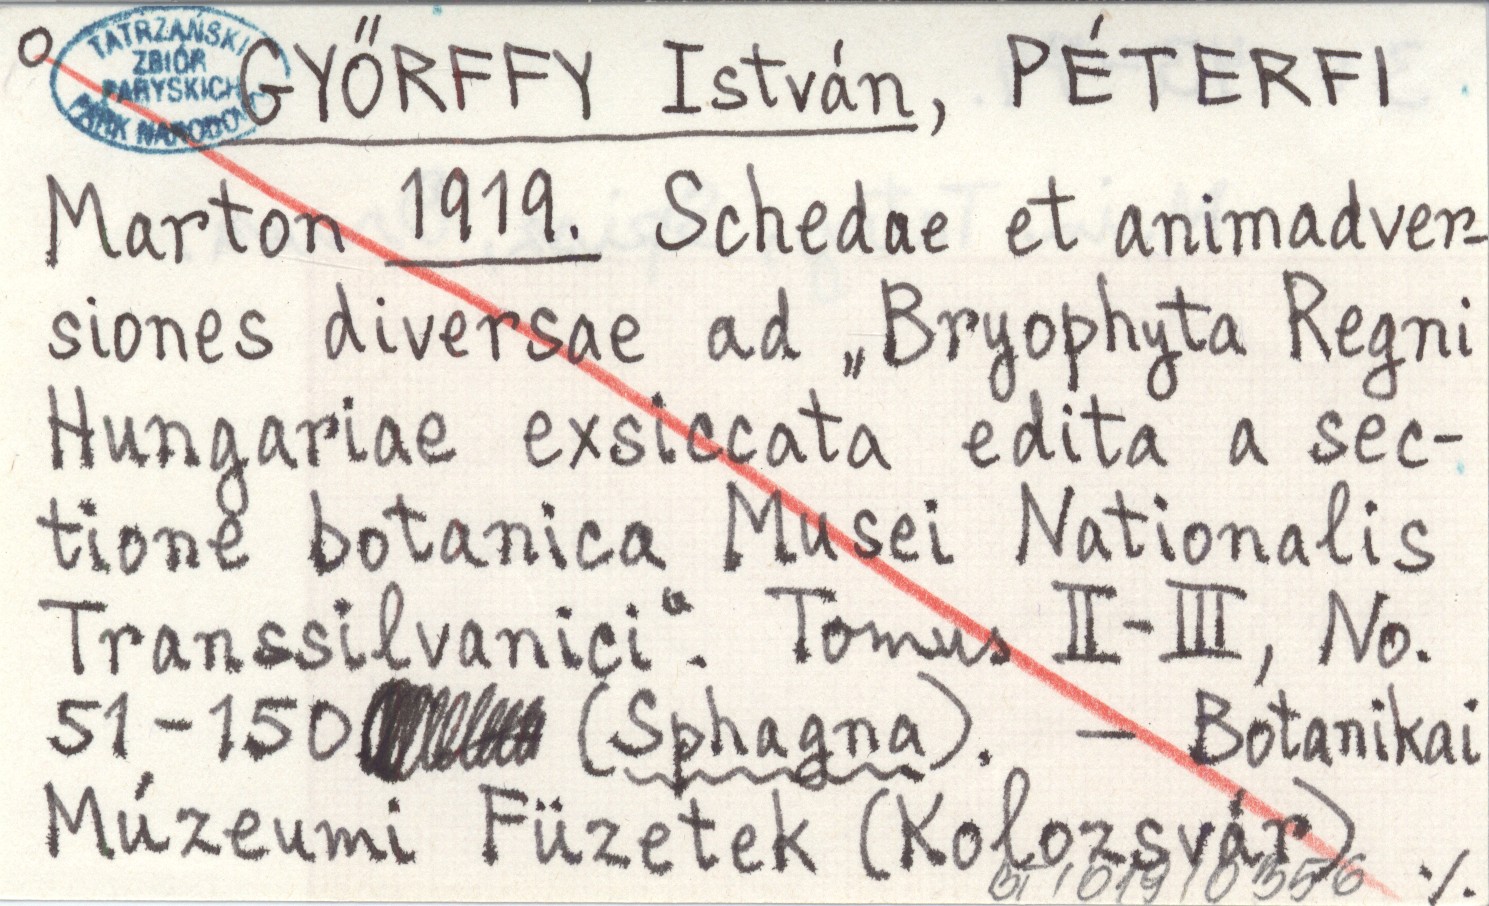 O
TATRZAŃSKI
ZBIÓR
PARYSKICH
PARK NARODOWY
GYŐRFFY István, PÉTERFI
Marton 1919. Schedae et animadver-
siones diversae ad „Bryophyta Regni
Hungariae exsiccata edita a sec-
tione botanica Musei Nationalis
Transsilvanici“. Tomus II-III, No.
51-150 (Sphagna). - Botanikai
Múzeumi Füzetek (Kolozsvár)
BT/019/0356
./.